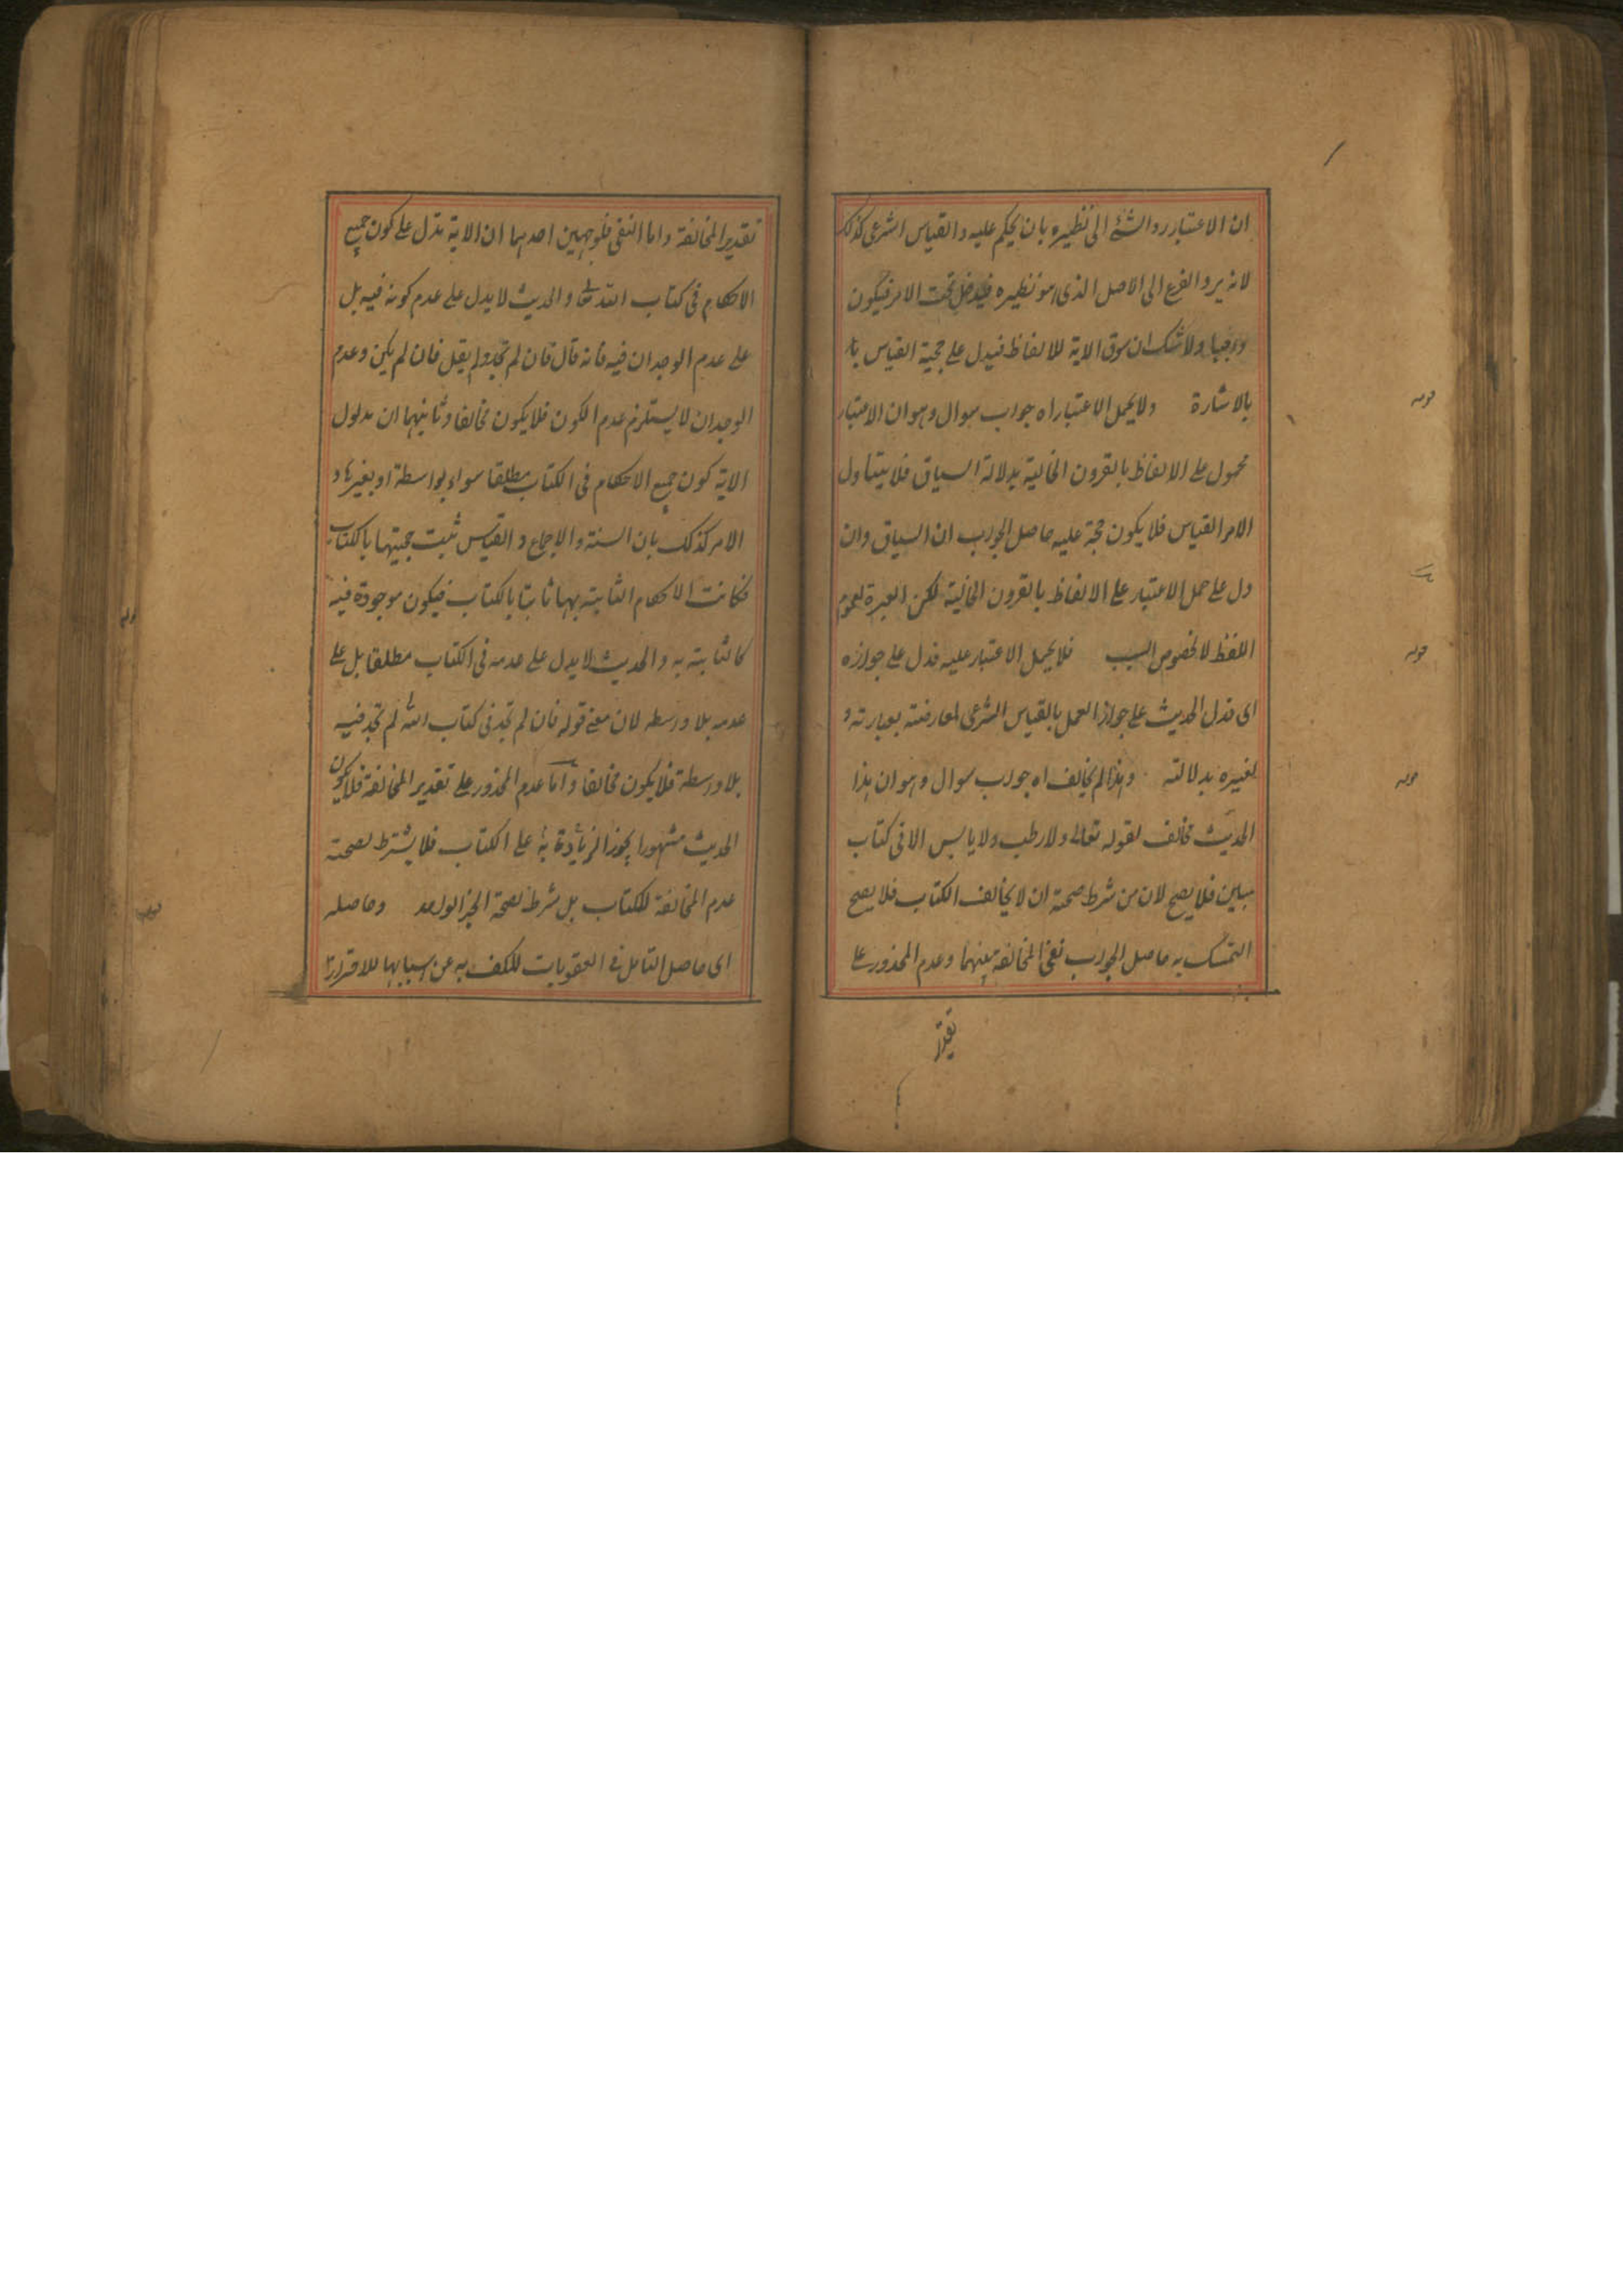 ان الاعتبار رد الشئ الى نظيره بان يحكم عليه والقياس الشرعى كذلك
لانه يرد الفرع الى الاصل الذى هو نظيره فيدخل تحت الامر فيكون
واجبا ولا شك ان سوق الاية للاتعاظ فيدل على حجية القياس با
بالاشارة ولا يحمل الاعتبار اه جواب سوال وهو ان الاعتبار
قوله
محمول على الاتعاظ بالقرون الخالية بدلالة السياق فلا يتناول
الامر القياس فلا يكون حجة عليه حاصل الجواب ان السياق وان
دل على حمل الاعتبار على الاتعاظ بالقرون الخالية لكن العبرة لعموم
اللفظ لا لخصوص السبب فلا يحمل الاعتبار عليه فدل على جوازه
قوله
اى فدل الحديث على جواز العمل بالقياس الشرعى لمعارضته بعبارته و
لغيره بدلالته وهذا لم يخالف اه جواب سوال وهو ان هذا
قوله
الحديث مخالف لقوله تعالى ولا رطب ولا يابس الا فى كتاب
مبين فلا يصح لان من شرط صحته ان لا يخالف الكتاب فلا يصح
التمسك به حاصل الجواب نفى المخالفة بينهما وعدم المحذور على
تقدير
تقدير المخالفة واما النفى فلوجهين احدهما ان الاية تدل على كون جميع
الاحكام فى كتاب الله تعا والحديث لا يدل على عدم كونه فيه بل
على عدم الوجدان فيه فانه قال فان لم تجد ولم يقل فان لم يكن وعدم
الوجدان لا يستلزم عدم الكون فلا يكون مخالفا وثانيهما ان مدلول
الاية كون جميع الاحكام فى الكتاب مطلقا سواء بواسطة او بغيرها و
الامر كذلك بان السنة والاجماع والقياس ثبت حجيتها بالكتاب
فكانت الاحكام الثابتة بها ثابتا بالكتاب فيكون موجودة فيه
كالثابتة به والحديث لا يدل على عدمه فى الكتاب مطلقا بل على
عدمه بلا واسطه لان معنى قوله فان لم تجد فى كتاب الله لم تجد فيه
بلا واسطة فلا يكون مخالفا واما عدم المحذور على تقدير المخالفة فلا يكون
الحديث مشهورا يجوز الزيادة به على الكتاب فلا يشترط لصحته
عدم المخالفة للكتاب بل شرط لصحة الخبر الواحد وحاصله
قوله
اى حاصل التامل فى العقوبات للكف به عن اسبابها للاحتراز